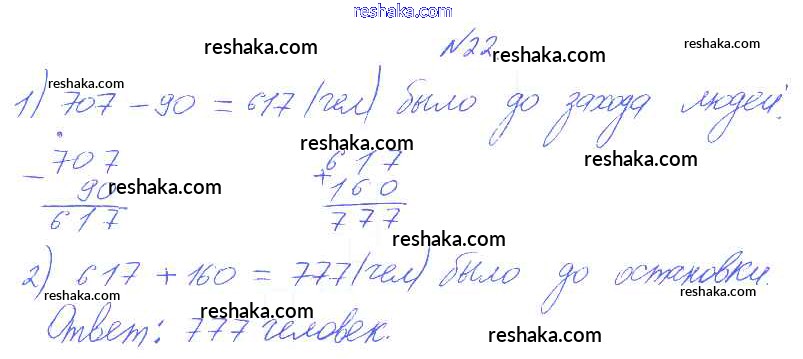 reshaka.com
reshaka.com №22 reshaka.com
reshaka.com
1) 707 - 90 = 617 (чел) было до захода людей.
reshaka.com
- 707 + 617
90 reshaka.com 160 reshaka.com
617 777
reshaka.com
2) 617 + 160 = 777 (чел) было до остановки.
reshaka.com reshaka.com reshaka.com
Ответ: 777 человек.
reshaka.com reshaka.com